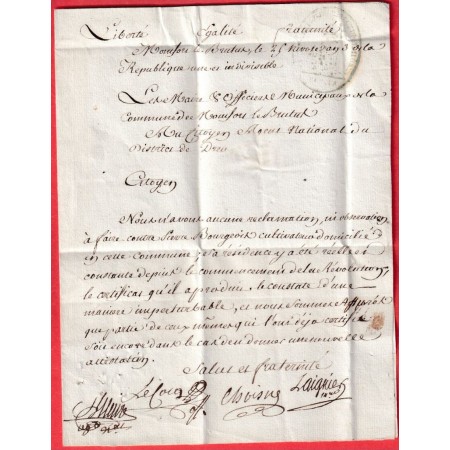 Liberté Egalité Fraternité
Montfort le Brutus, le 25 Nivose an 3 de la
République une et indivisible
Les Maire & Officiers Municipaux de la
Commune de Montfort le Brutus
Au Citoyen Agent National du
District de
Citoyen
Nous n'avons aucune reclamation, ni observation
à faire contre Pierre Bourgeois cultivateur domicilié
en cette commune, sa résidence y a été réelle et
constante depuis le commencement de la Révolution,
le certificat qu'il a produit le constate d'une
maniere imperturbable, et nous sommes
que partie de ceux qui l'ont déja certifié
sont encore dans le cas de donner une nouvelle
attestation.
Salut et fraternité
Le Coq Choisne Laignier